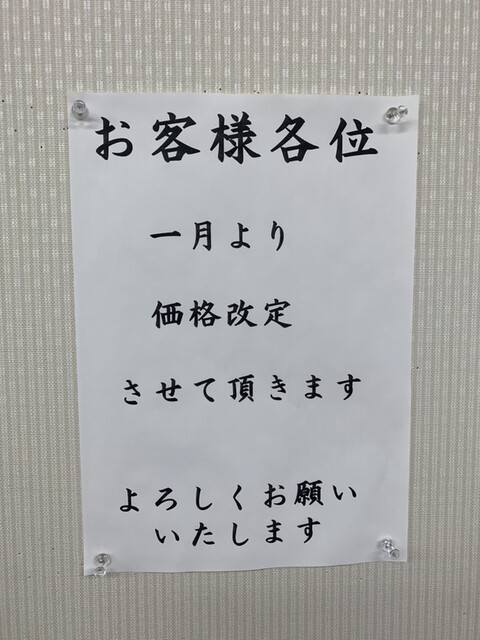 お客様各位
一月より
価格改定
させて頂きます
よろしくお願い
いたします